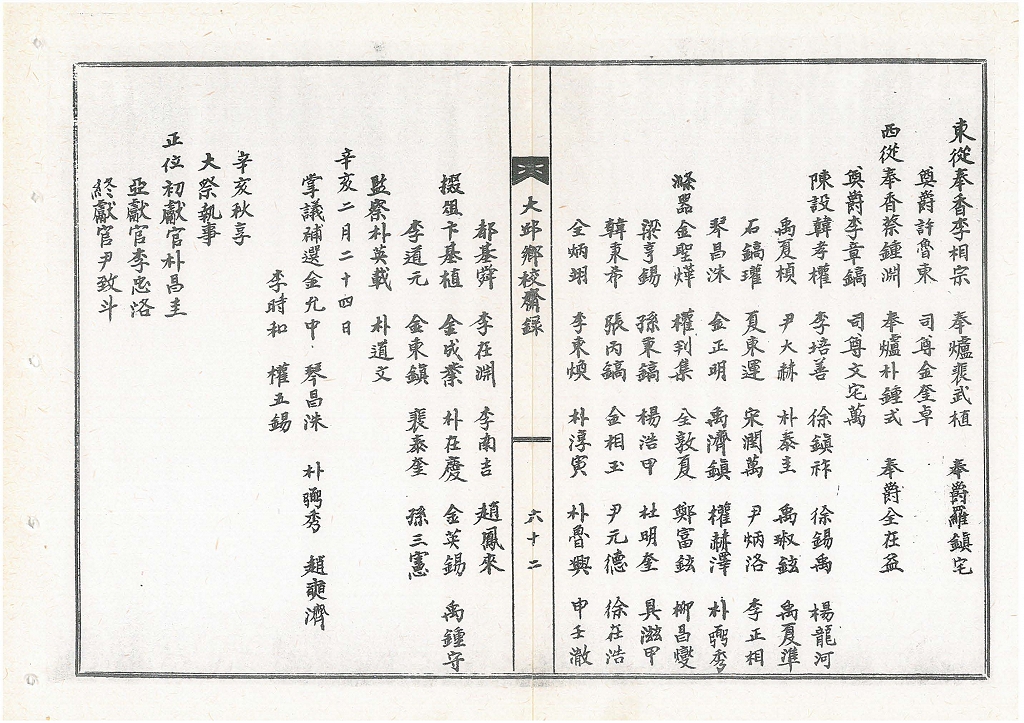 東從奉香李相宗 奉爐裵武植 奉爵羅鎭宅
奠爵許魯東 司尊金奎卓
西從奉香蔡鍾淵 奉爐朴鍾式 奉爵全在益
奠爵李章鎬 司尊文宅萬
陳設韓孝權 李培善 徐鎭祚 徐錫禹 楊龍河
禹夏楨 尹大赫 朴泰圭 禹淑鉉 禹夏準
石鎬瓘 夏東運 宋潤萬 尹炳洛 李正相
琴昌洙 金正明 禹濟鎭 權赫澤 朴弼秀
滌器金聖燁 權判集 全敦夏 鄭富鉉 柳昌燮
梁亨錫 孫東鎬 楊浩甲 杜明奎 具滋甲
韓東希 張丙鎬 金相玉 尹元德 徐在浩
全炳翊 李東煥 朴淳寅 朴魯興 申壬澈
大邱鄕校齋錄
六十二
都基舜 李在淵 李南吉 趙鳳來
掇俎卞基植 金成業 朴在慶 金英錫 禹鍾守
李道元 金東鎭 裵泰奎 孫三憲
監察朴英載 朴道文
辛亥二月二十四日
掌議補選金允中 琴昌洙 朴弼秀 趙奭濟
李時和 權五錫
辛亥秋享
大祭執事
正位初獻官朴昌圭
亞獻官李忠洛
終獻官尹致斗